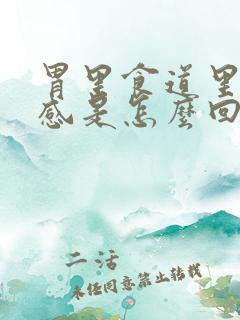 胃里食道里
感是怎麼回
二活
未经同意禁止转载